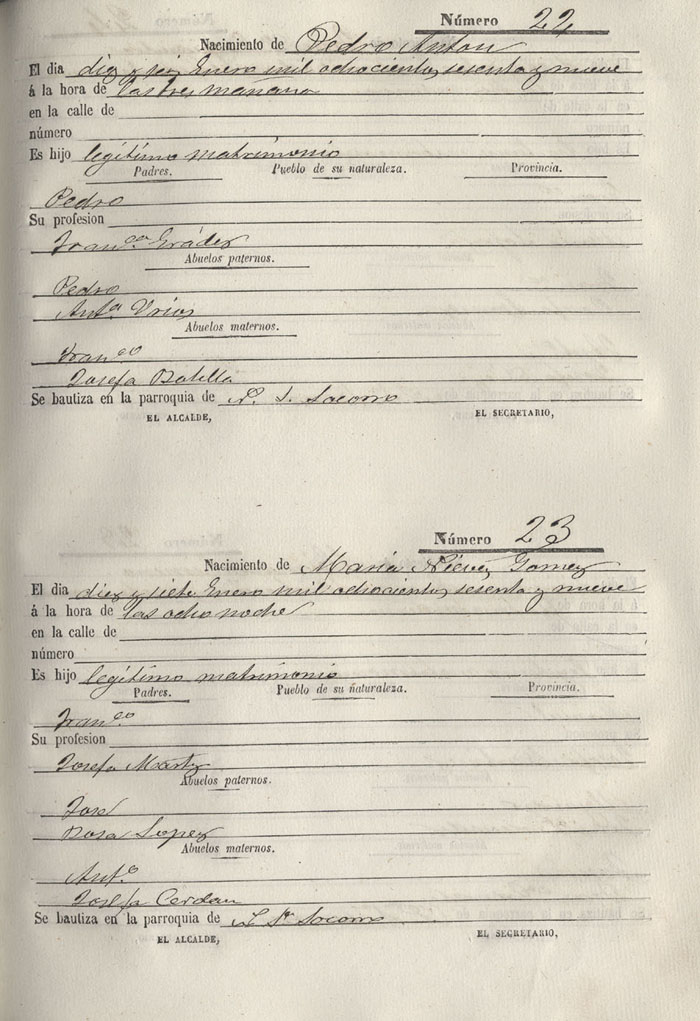 Número 22
Nacimiento de Pedro Anton
El dia diez y seis Enero mil ochocientos sesenta y nueve
á la hora de las tres mañana
en la calle de
número
Es hijo legítimo matrimonio
Padres. Pueblo de su naturaleza. Provincia.
Pedro
Su profesion
Fran.ca
Abuelos paternos.
Pedro
Ant.a Urios
Abuelos maternos.
Fran.co
Josefa Botella
Se bautiza en la parroquia de N. S. Socorro
EL ALCALDE, EL SECRETARIO,
Número 23
Nacimiento de Maria Nieves Gomez
El dia diez y siete Enero mil ochocientos sesenta y nueve
á la hora de las ocho noche
en la calle de
número
Es hijo legítimo matrimonio
Padres. Pueblo de su naturaleza. Provincia.
Fran.co
Su profesion
Josefa Martz
Abuelos paternos.
José
Rosa Lopez
Abuelos maternos.
Ant.o
Josefa Cerdan
Se bautiza en la parroquia de Socorro
EL ALCALDE, EL SECRETARIO,